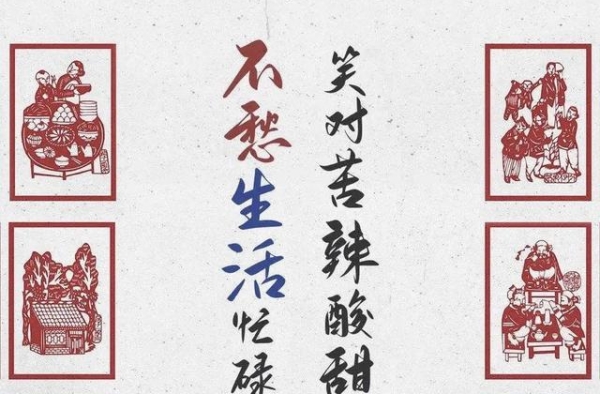 笑对苦辣酸甜
不愁生活忙碌